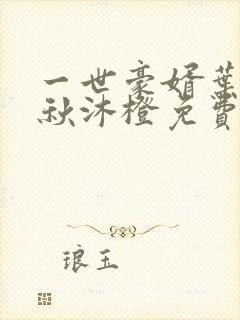 一世豪婿葉
秋沐橙免費
琅玉